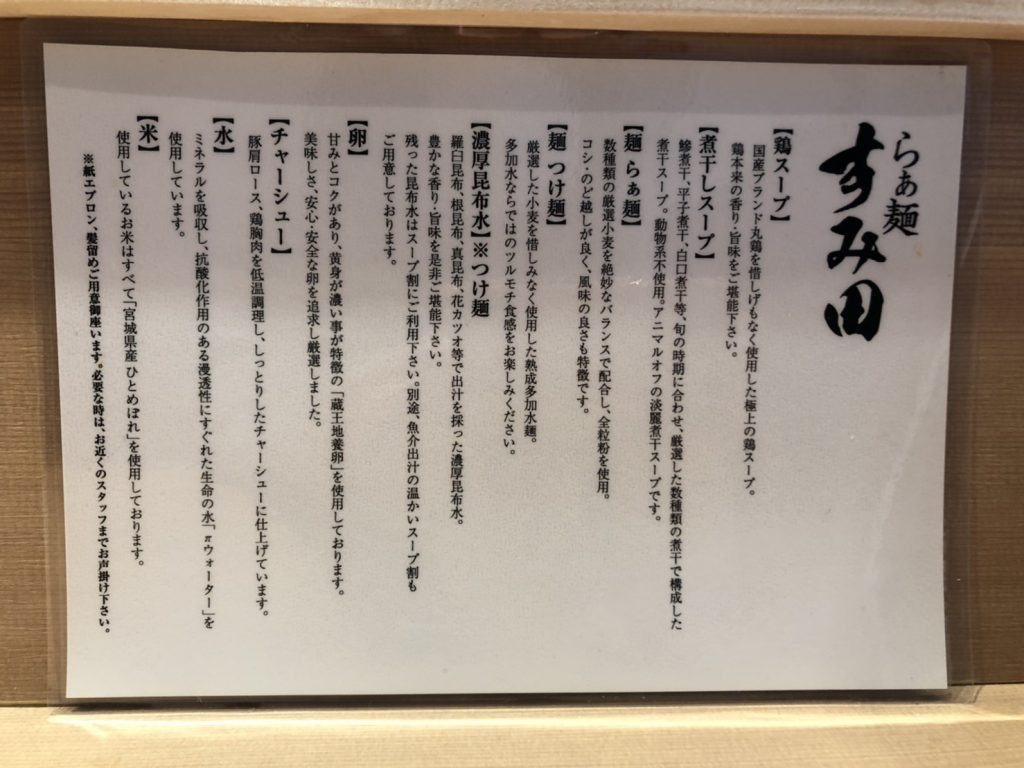 らぁ麺
すみ田
【鶏スープ】
国産ブランド丸鶏を惜しげもなく使用した極上の鶏スープ。
鶏本来の香り・旨味をご堪能下さい。
【煮干しスープ】
鯵煮干、平子煮干、白口煮干等、旬の時期に合わせ、厳選した数種類の煮干で構成した
煮干スープ。動物系不使用。アニマルオフの淡麗煮干スープです。
【麺 らぁ麺】
数種類の厳選小麦を絶妙なバランスで配合し、全粒粉を使用。
コシ・のど越しが良く、風味の良さも特徴です。
【麺 つけ麺】
厳選した小麦を惜しみなく使用した熟成多加水麺。
多加水ならではのツルモチ食感をお楽しみください。
【濃厚昆布水】※つけ麺
羅臼昆布、根昆布、真昆布、花カツオ等で出汁を採った濃厚昆布水。
豊かな香り・旨味を是非ご堪能下さい。
残った昆布水はスープ割にご利用下さい。別途、魚介出汁の温かいスープ割も
ご用意しております。
【卵】
甘みとコクがあり、黄身が濃い事が特徴の「蔵王地養卵」を使用しております。
美味しさ、安心・安全な卵を追求し厳選しました。
【チャーシュー】
豚肩ロース、鶏胸肉を低温調理し、しっとりしたチャーシューに仕上げています。
【水】
ミネラルを吸収し、抗酸化作用のある浸透性にすぐれた生命の水「πウォーター」を
使用しています。
【米】
使用しているお米はすべて「宮城県産 ひとめぼれ」を使用しております。
※紙エプロン、髪留めご用意御座います。必要な時は、お近くのスタッフまでお声掛け下さい。